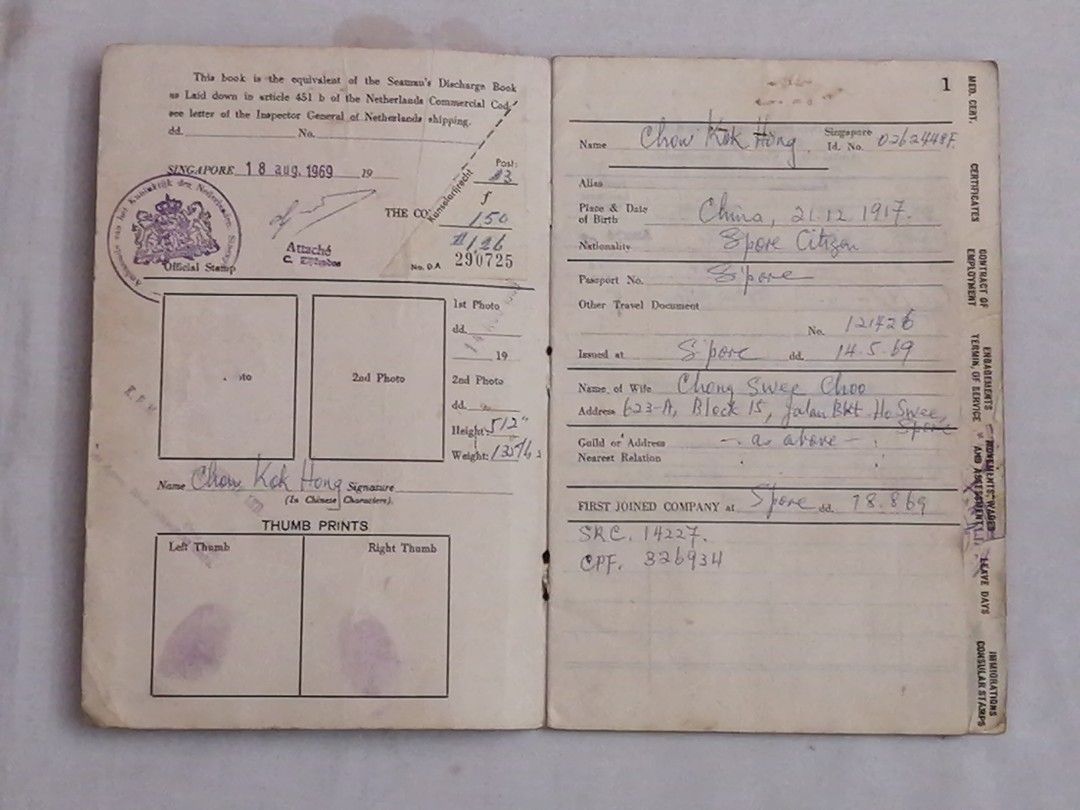 This book is the equivalent of the Seaman's Discharge Book
as Laid down in article 451 b of the Netherlands Commercial Cod
see letter of the Inspector General of Netherlands shipping.
dd. No.
SINGAPORE, 18 aug. 1969 19
Official Stamp
Attaché
THE CO
Kanselarijrecht
Post:
f
150
$1.26
No. D.A 290725
1st Photo
dd.
19
2nd Photo
2nd Photo
dd.
Height: 5'2"
Weight:
Name Chow Kok Hong Signature
(In Chinese Characters).
THUMB PRINTS
Left Thumb Right Thumb
1
Name Chow Kok Hong Singapore Id. No. 0262448F.
Alias
Place & Date of Birth China, 21.12 1917.
Nationality S'pore Citizen
Passport No. S'pore
Other Travel Document
No. 121426
Issued at S'pore dd. 14.5.69
Name of Wife Chong Swee Choo
Address 623-A, Block 15, Jalan Bkt. Ho Swee,
S'pore
Guild or Address - as above -
Nearest Relation
FIRST JOINED COMPANY at S'pore dd. 18.8.69
SRC. 14227.
CPF. 326934
MED. CERT.
CERTIFICATES
CONTRACT OF EMPLOYMENT
ENGAGEMENTS TERMIN. OF SERVICE
MOVEMENTS, WAGES AND ASSESSMENT
LEAVE DAYS
IMMIGRATIONS CONSULAR STAMPS